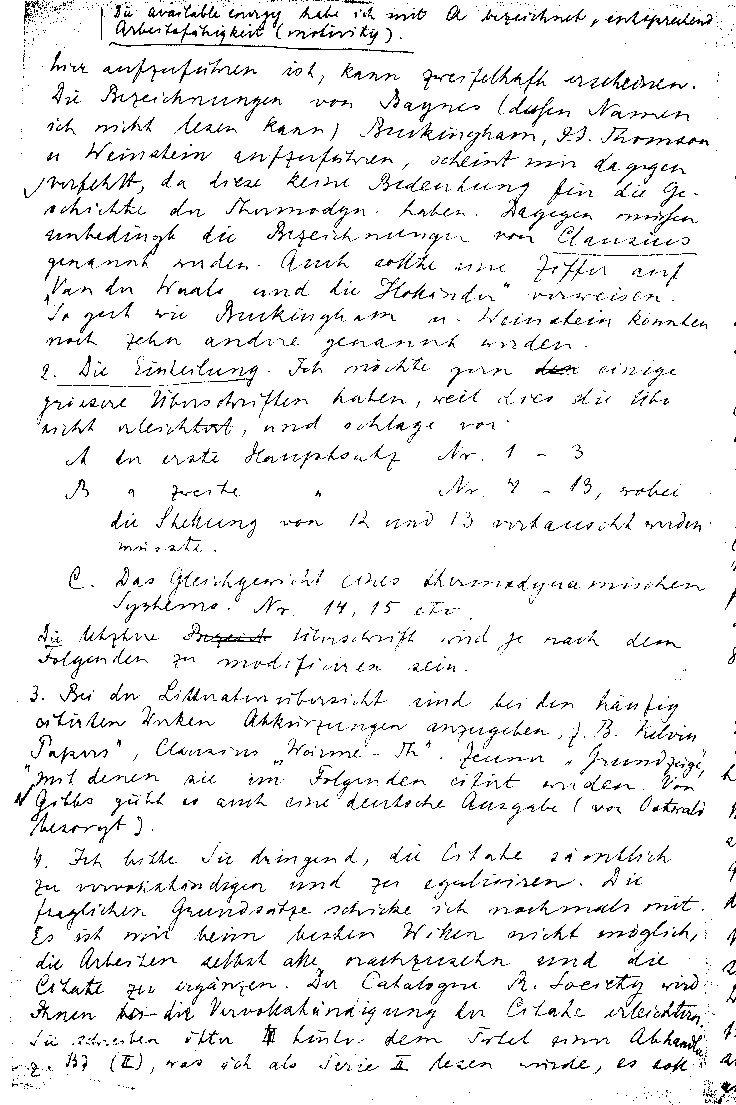 Die available energy habe ich mit A bezeichnet, entsprechend
Arbeitsfähigkeit (motivity).
hier aufzuführen ist, kann zweifelhaft erscheinen.
Die Bezeichnungen von Baynes (dessen Namen
ich nicht lesen kann) Buckingham, J.J. Thomson
u Weinstein aufzuführen, scheint mir dagegen
verfehlt, da diese keine Bedeutung für die Ge-
schichte der Thermodyn. haben. Dagegen müssen
unbedingt die Bezeichnungen von Clausius
genannt werden. Auch sollte eine Ziffer auf
"Van der Waals und die Holländer" verweisen.
So gut wie Buckingham u. Weinstein könnten
noch zehn andere genannt werden.
2. Die Einteilung. Ich möchte gern den einige
grössere Überschriften haben, weil dies die Über
sicht erleichtert, und schlage vor:
A der erste Hauptsatz Nr. 1 - 3
B " zweite " Nr. 4 - 13, wobei
die Stellung von 12 und 13 vertauscht werden
müsste.
C. Das Gleichgewicht eines thermodynamischen
Systems. Nr. 14, 15 etc
Die letztere Bezeich Überschrift wird je nach dem
Folgenden zu modificiren sein.
3. Bei der Litteraturübersicht sind bei den häufig
citirten Werken Abkürzungen anzugeben, z. B. Kelvin
Papers", Clausius "Wärme-Th". Zeuner "Grundzüge",
mit denen sie im Folgenden citirt werden. Von
Gibbs giebt es auch eine deutsche Ausgabe (von Ostwald
besorgt).
4. Ich bitte Sie dringend, die Citate sämtlich
zu vervollständigen und zu egalisiren. Die
fraglichen Grundsätze schicke ich nochmals mit.
Es ist mir beim besten Willen nicht möglich,
die Arbeiten selbst alle nachzusehn und die
Citate zu ergänzen. Der Catalogue R. Society wird
Ihnen bei die Vervollständigung der Citate erleichtern.
Sie schreiben öfter hinter dem Titel einer Abhandlg
z. Bd (II), was ich als Serie II lesen würde, es soll